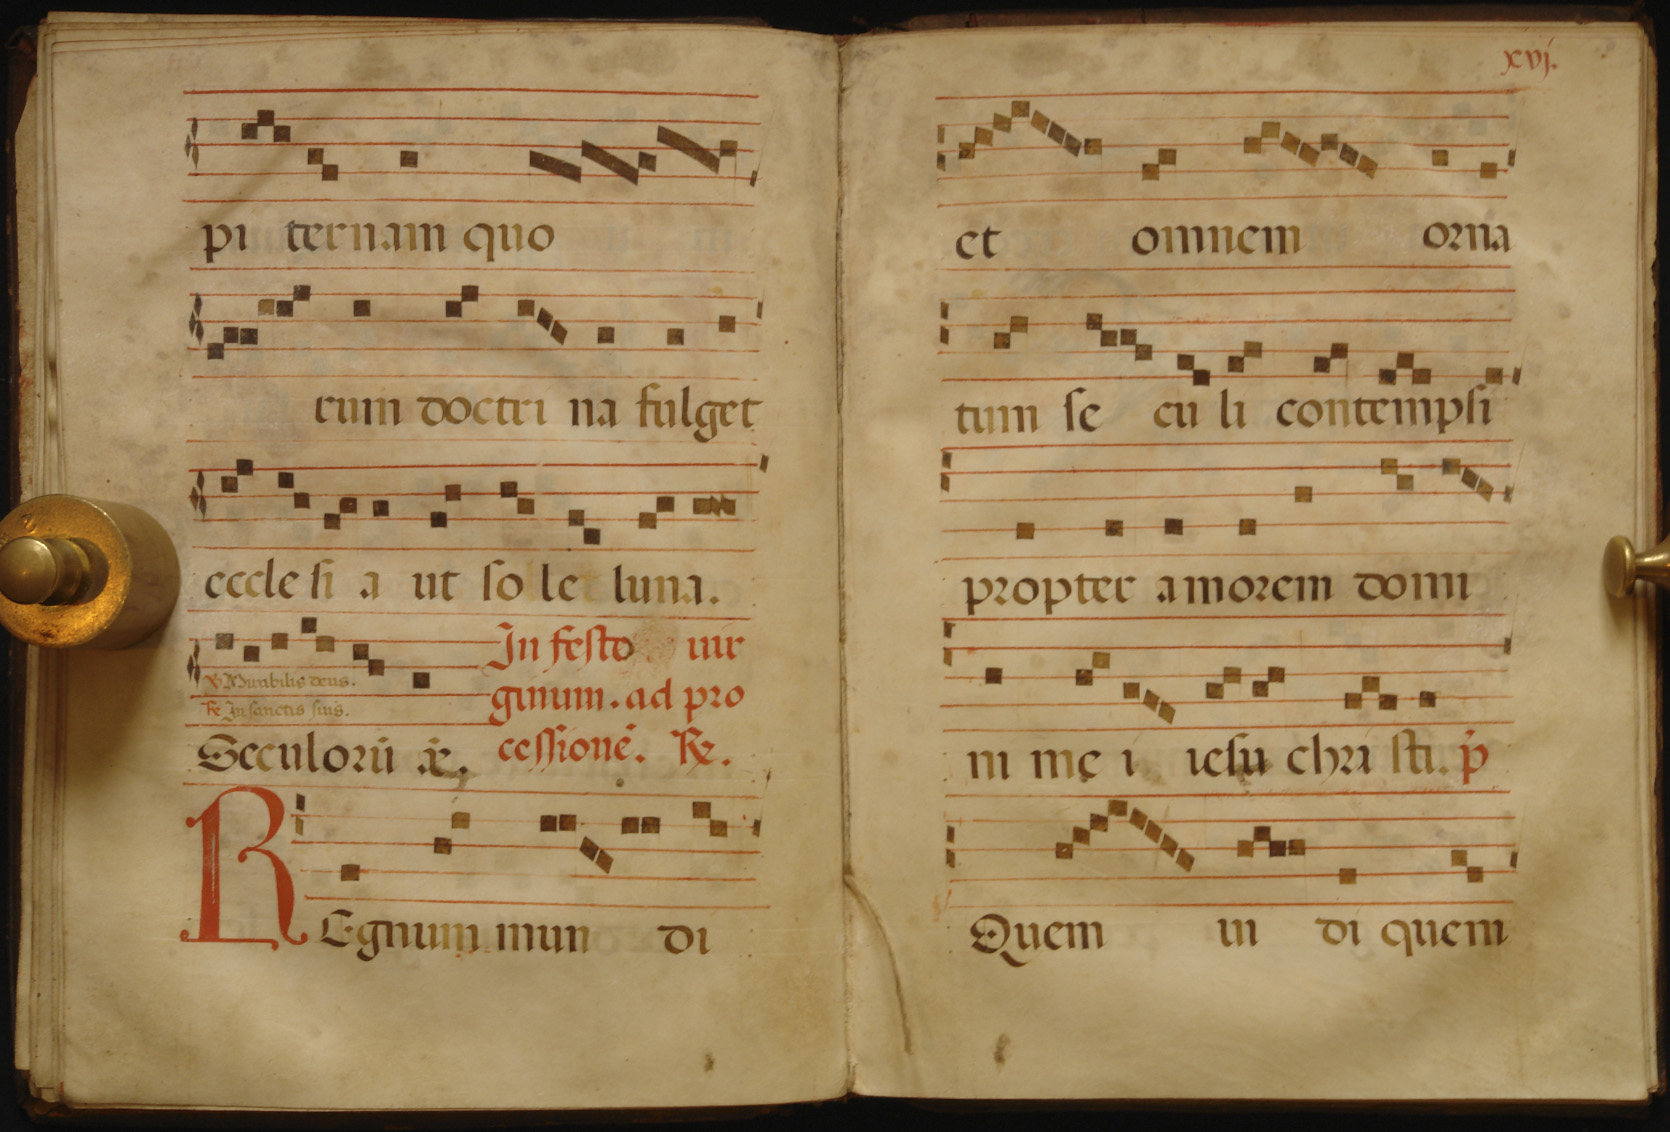 pi ternam quo
rum doctri na fulget
eccle si a ut so le luna.
In festo uir
℣ Mirabilis deus.
ginum. ad pro
℟ In sanctis suis.
Seculorū æ.
cessionē. ℟.
REgnum mun di
xvj.
et omnem orna
tum se cu li contempsi
propter amorem domi
ni me i iesu chri sti. p̄
Quem ui di quem